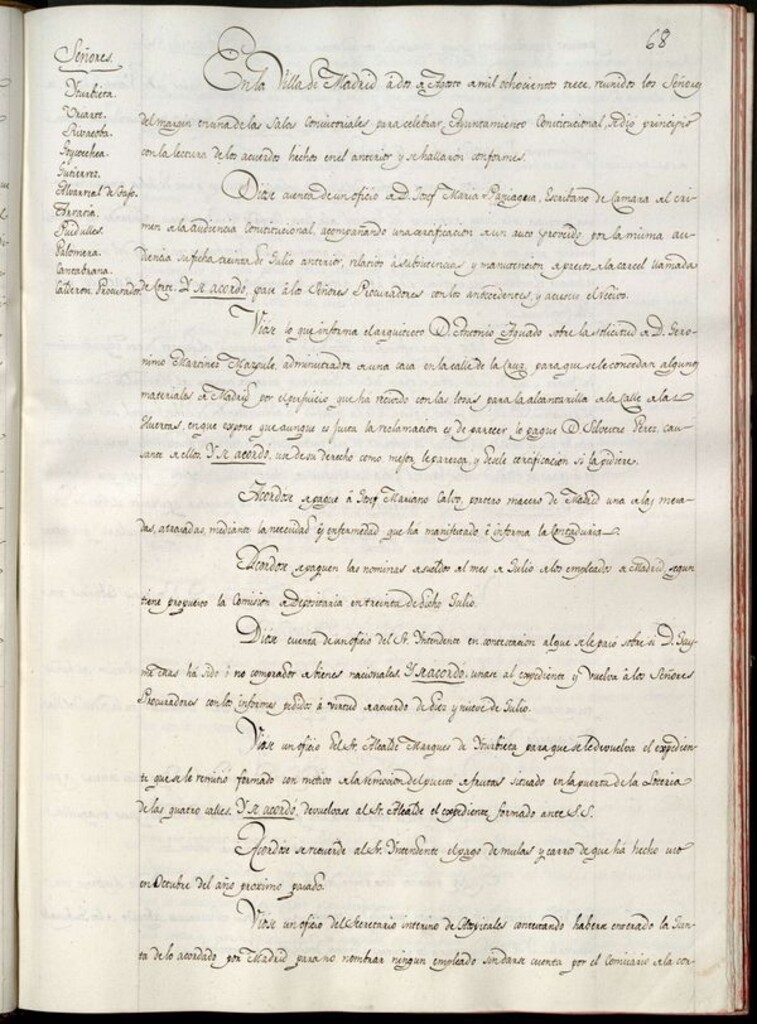 68
Señores.
Yturbieta.
Uriarte.
Rivacoba.
Goycoechea.
Gutierrez.
Palomera.
Cantabrana.
Calderon. Procurador
En la Villa de Madrid á dos de Agosto de mil ochocientos trece, reunidos los Señores
del margen en una de las Salas Consistoriales para celebrar Ayuntamiento Constitucional, se dió principio
con la lectura de los acuerdos hechos en el anterior y se hallaron conformes.
Diose cuenta de un oficio de D. Josef Maria Paniagua, Escribano de Camara del cri-
men de la audiencia Constitucional, acompañando una certificacion de un auto proveido por la misma au-
diencia su fecha treinta de Julio anterior, relativo á subsistencias y manutencion de presos de la carcel llamada
de Corte. Y se acordó, pase á los Señores Procuradores con los antecedentes, y acuses el recivo.
Viose lo que informa el arquitecto D. Antonio Aguado sobre la solicitud de D. Gero-
nimo Martinez Mazpule, administrador de una casa en la calle de la Cruz, para que se le concedan algunos
materiales de Madrid por el perjuicio que ha recivido con las losas para la alcantarilla de la Calle de las
Huertas, en que expone que aunque es justa la reclamacion es de parecer lo pague D. Silvestre Perez, cau-
sante de ellos. Y se acordó, use de su derecho como mejor le parezca, y desele certificacion si la pidiere.
Acordose se pague á Josef Mariano Calvo, portero macero de Madrid una de las mesa-
das, atrasadas, mediante la necesidad y enfermedad que ha manifestado é informa la Contaduria.
Acordose se paguen las nominas de sueldos del mes de Julio de los empleados de Madrid, segun
tiene propuesto la Comision de Depositaria en treinta de dicho Julio.
Diose cuenta de un oficio del Sr. Yntendente en contestacion al que se le pasó sobre si D. Cay-
ha sido ó no comprador de bienes nacionales. Y se acordó, unase al expediente y vuelva á los Señores
Procuradores con los informes pedidos á virtud de acuerdo de diez y nueve de Julio.
Viose un oficio del Sr. Alcalde Marques de Yturbieta para que se le devuelva el expedien-
te que se le remitió formado con motivo de la remocion del puesto de frutas situado en la puerta de la Loteria
de las quatro calles. Y se acordó, devuelvase al Sr. Alcalde el expediente formado ante S.S.
Acordose se recuerde al Sr. Yntendente el pago de mulas y carros de que há hecho uso
en Octubre del año proximo pasado.
Viose un oficio del Secretario interino de Hospitales contestando haberse enterado la Jun-
ta de lo acordado por Madrid para no nombrar ningun empleado sin darse cuenta por el Comisario de la cor-